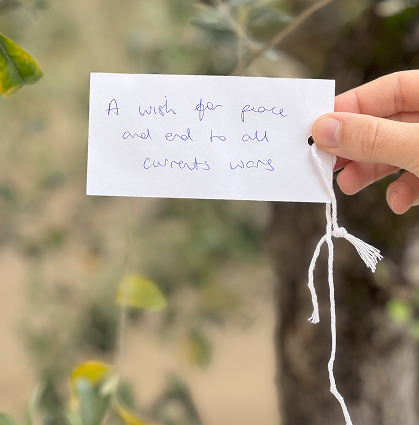 A wish for peace
and end to all
currents wars